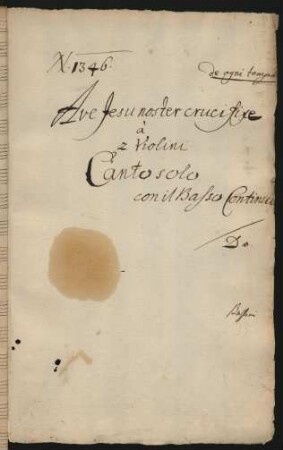 N. 1346.
de ogni tempo
Ave Jesu noster crucifixe
à
2 Violini
Canto solo
con il Basso Continuo
Do